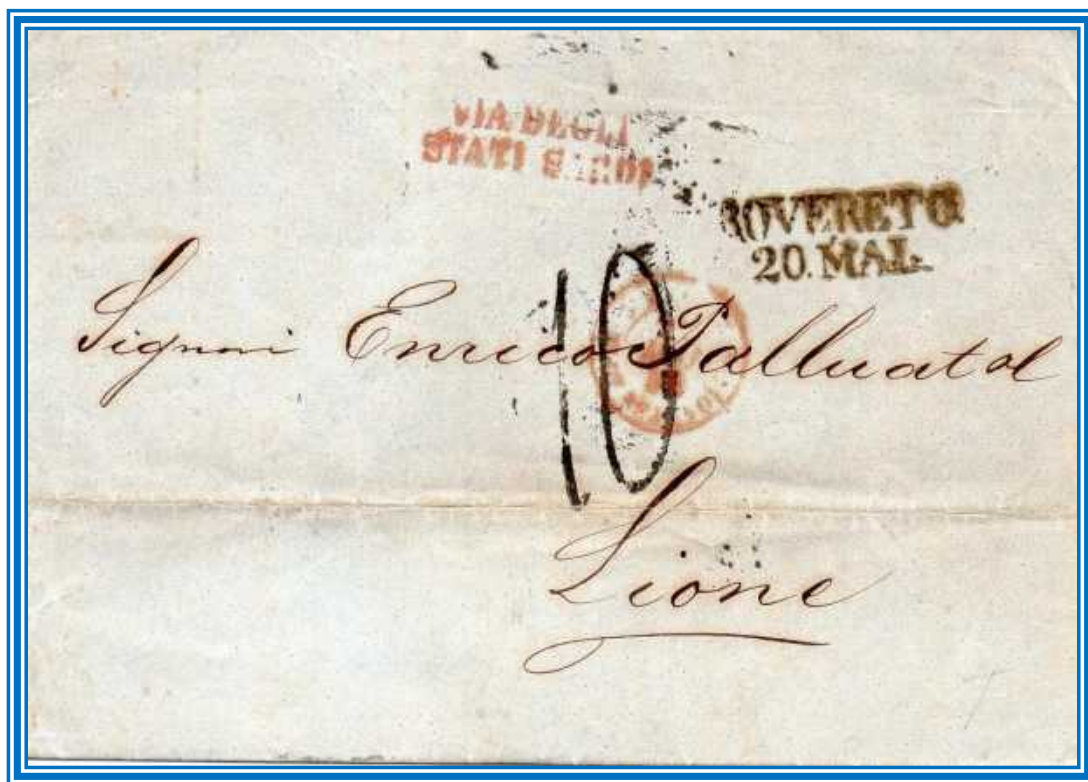 VIA DEGLI
STATI SARDI
ROVERETO
20. MAI.
10
Signori Enrico Palluat et
Lione